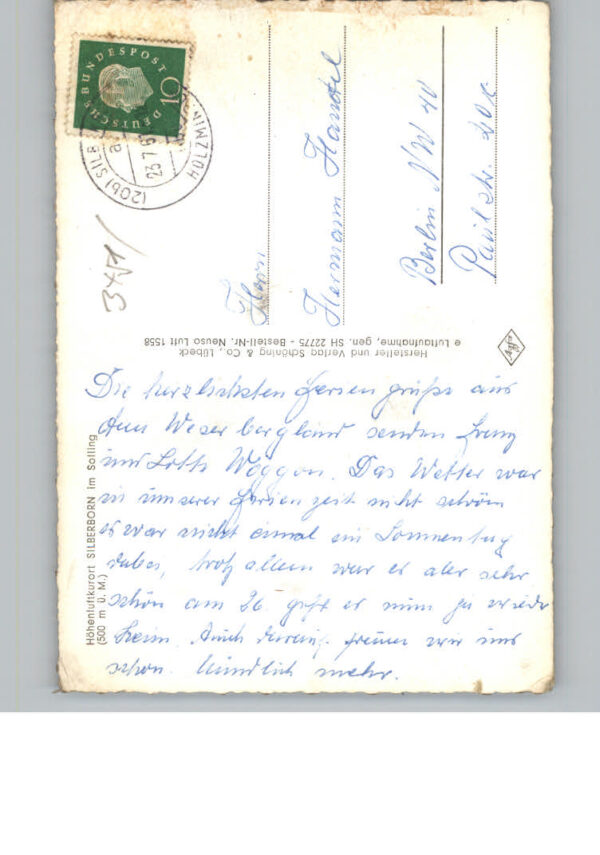 DEUTSCHE BUNDESPOST
10
(20b) SILB
HOLZMIN
23.7.6
Herrn
Hermann
Berlin NW 40
Paulstr. 20c
Hersteller und Verlag Schöning & Co., Lübeck
e Luftaufnahme, gen. SH 22775 - Bestell-Nr. Neuso Luft 1558
Agfa
Höhenluftkurort SILBERBORN im Solling
(500 m ü. M.)
Die herzlichsten Feriengrüße aus
dem Weserbergland senden Franz
und Lotte Woggon. Das Wetter war
in unserer Ferienzeit nicht schön
es war nicht einmal ein Sonnentag
dabei, trotz allem war es aber sehr
schön am 26. geht es nun ja wieder
heim. Auch darauf freuen wir uns
schon. Mündlich mehr.